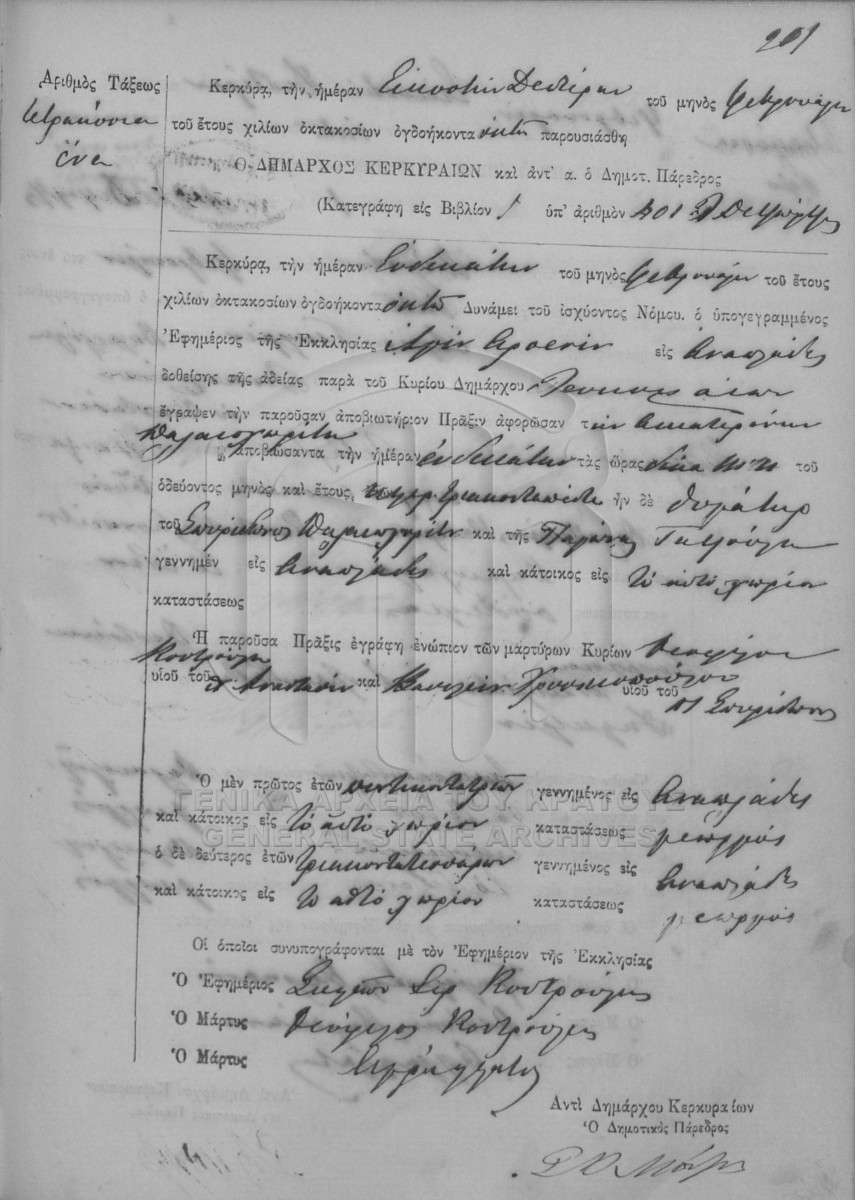 201
Ἀριθμὸς Τάξεως
τετρακόσια
ἕνα
Κερκύρᾳ, τὴν ἡμέραν Εἰκοστὴν Δευτέραν τοῦ μηνὸς Φεβρουαρίου
τοῦ ἔτους χιλίων ὀκτακοσίων ὀγδοήκοντα ὀκτὼ παρουσιάσθη
Ὁ ΔΗΜΑΡΧΟΣ ΚΕΡΚΥΡΑΙΩΝ καὶ ἀντ' α. ὁ Δημοτ. Πάρεδρος
(Κατεγράφη εἰς Βιβλίον ὑπ' ἀριθμὸν 401
Κερκύρᾳ, τὴν ἡμέραν Ἑνδεκάτην τοῦ μηνὸς Φεβρουαρίου τοῦ ἔτους
χιλίων ὀκτακοσίων ὀγδοήκοντα ὀκτὼ Δυνάμει τοῦ ἰσχύοντος Νόμου. ὁ ὑπογεγραμμένος
Ἐφημέριος τῆς Ἐκκλησίας εἰς Αναπλάδες
δοθείσης τῆς ἀδείας παρὰ τοῦ Κυρίου Δημάρχου
ἔγραψεν τὴν παροῦσαν ἀποβιωτήριον Πρᾶξιν ἀφορῶσαν τ ὴν Αικατερίνην
Παλαιογαρίτη
ἀποβιώσαντα τὴν ἡμέραν ἑνδεκάτην τὰς ὥρας δέκα τοῦ
ὁδεύοντος μηνὸς καὶ ἔτους, τριακονταπέντε ἦν δὲ θυγάτηρ
τοῦ Σπυρίδωνος καὶ τῆς
γεννημὲν εἰς Αναπλάδες καὶ κάτοικος εἰς τὸ αὐτὸ χωρίον
καταστάσεως
Ἡ παροῦσα Πρᾶξις ἐγράφη ἐνώπιον τῶν μαρτύρων Κυρίων Θεοφίλου
Κουτρούλη
υἱοῦ τοῦ π Αναστασίου καὶ Βασιλείου Χρυσικοπούλου υἱοῦ τοῦ π Σπυρίδωνος
Ὁ μὲν πρῶτος ἐτῶν πεντηκοντατριῶν γεννημένος εἰς Αναπλάδες
καὶ κάτοικος εἰς τὸ αὐτὸ χωρίον καταστάσεως γεωργός
ὁ δὲ δεύτερος ἐτῶν τριακοντατεσσάρων γεννημένος εἰς Αναπλάδες
καὶ κάτοικος εἰς τὸ αὐτὸ χωρίον καταστάσεως γεωργός
ΓΕΝΙΚΑ ΑΡΧΕΙΑ ΤΟΥ ΚΡΑΤΟΥΣ
GENERAL STATE ARCHIVES
Οἱ ὁποῖοι συνυπογράφονται μὲ τὸν Ἐφημέριον τῆς Ἐκκλησίας
Ὁ Ἐφημέριος Κουτρούλης
Ὁ Μάρτυς Θεόφιλος Κουτρούλης
Ὁ Μάρτυς Αγράμματος
Ἀντὶ Δημάρχου Κερκυραίων
Ὁ Δημοτικὸς Πάρεδρος